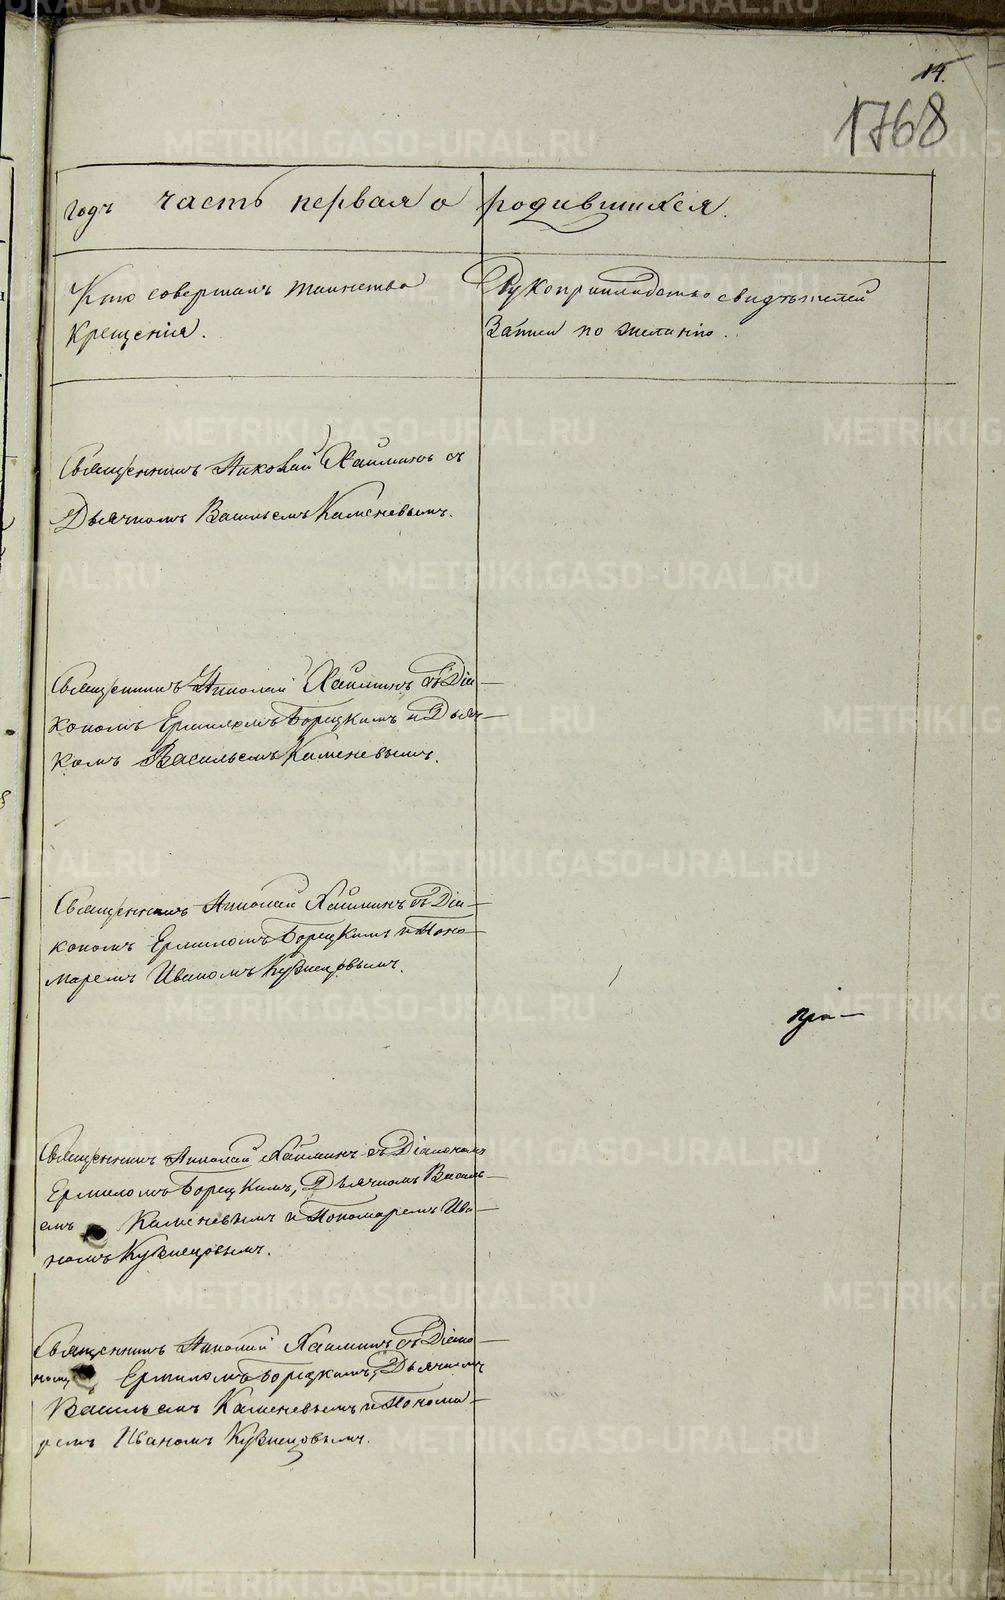 14.
1768
годъ часть первая о родившихся.
Кто совершалъ таинство
крещенія.
Рукоприкладство свидѣтелей
записи по желанію.
Священникъ Николай с
Дьячкомъ Васильемъ Каменевымъ.
Священникъ Николай съ Діа-
кономъ Ермиломъ Борецкимъ и Дьяч-
комъ Васильемъ Каменевымъ.
Священникъ Николай съ Діа-
кономъ Ермиломъ Борецкимъ и Поно-
маремъ Иваномъ Кузнецовымъ.
Священникъ Николай съ Діакономъ
Ермиломъ Борецкимъ, Дьячкомъ Василь-
емъ Каменевымъ и Пономаремъ Ива-
номъ Кузнецовымъ.
Священникъ Николай съ Діако-
номъ Ермиломъ Борецкимъ, Дьячкомъ
Васильемъ Каменевымъ и Понома-
ремъ Иваномъ Кузнецовымъ.
METRIKI.GASO-URAL.RU